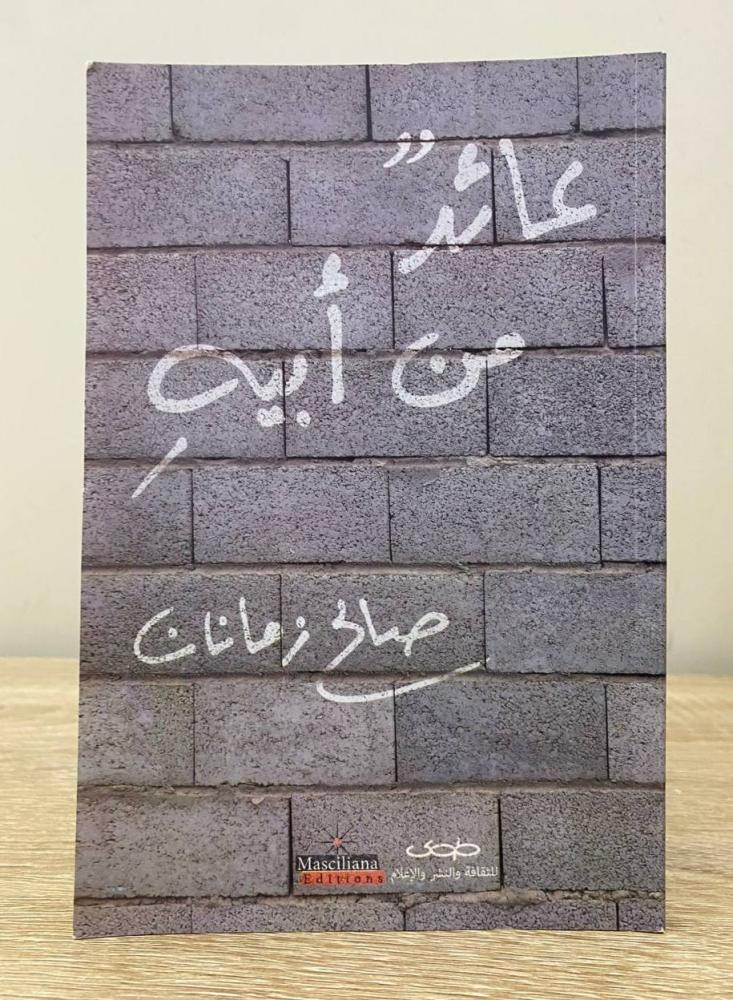 عائدٌ
من أبيهِ
صالح زمانان
Masciliana
Editions
طوى
للثقافة والنشر والإعلام